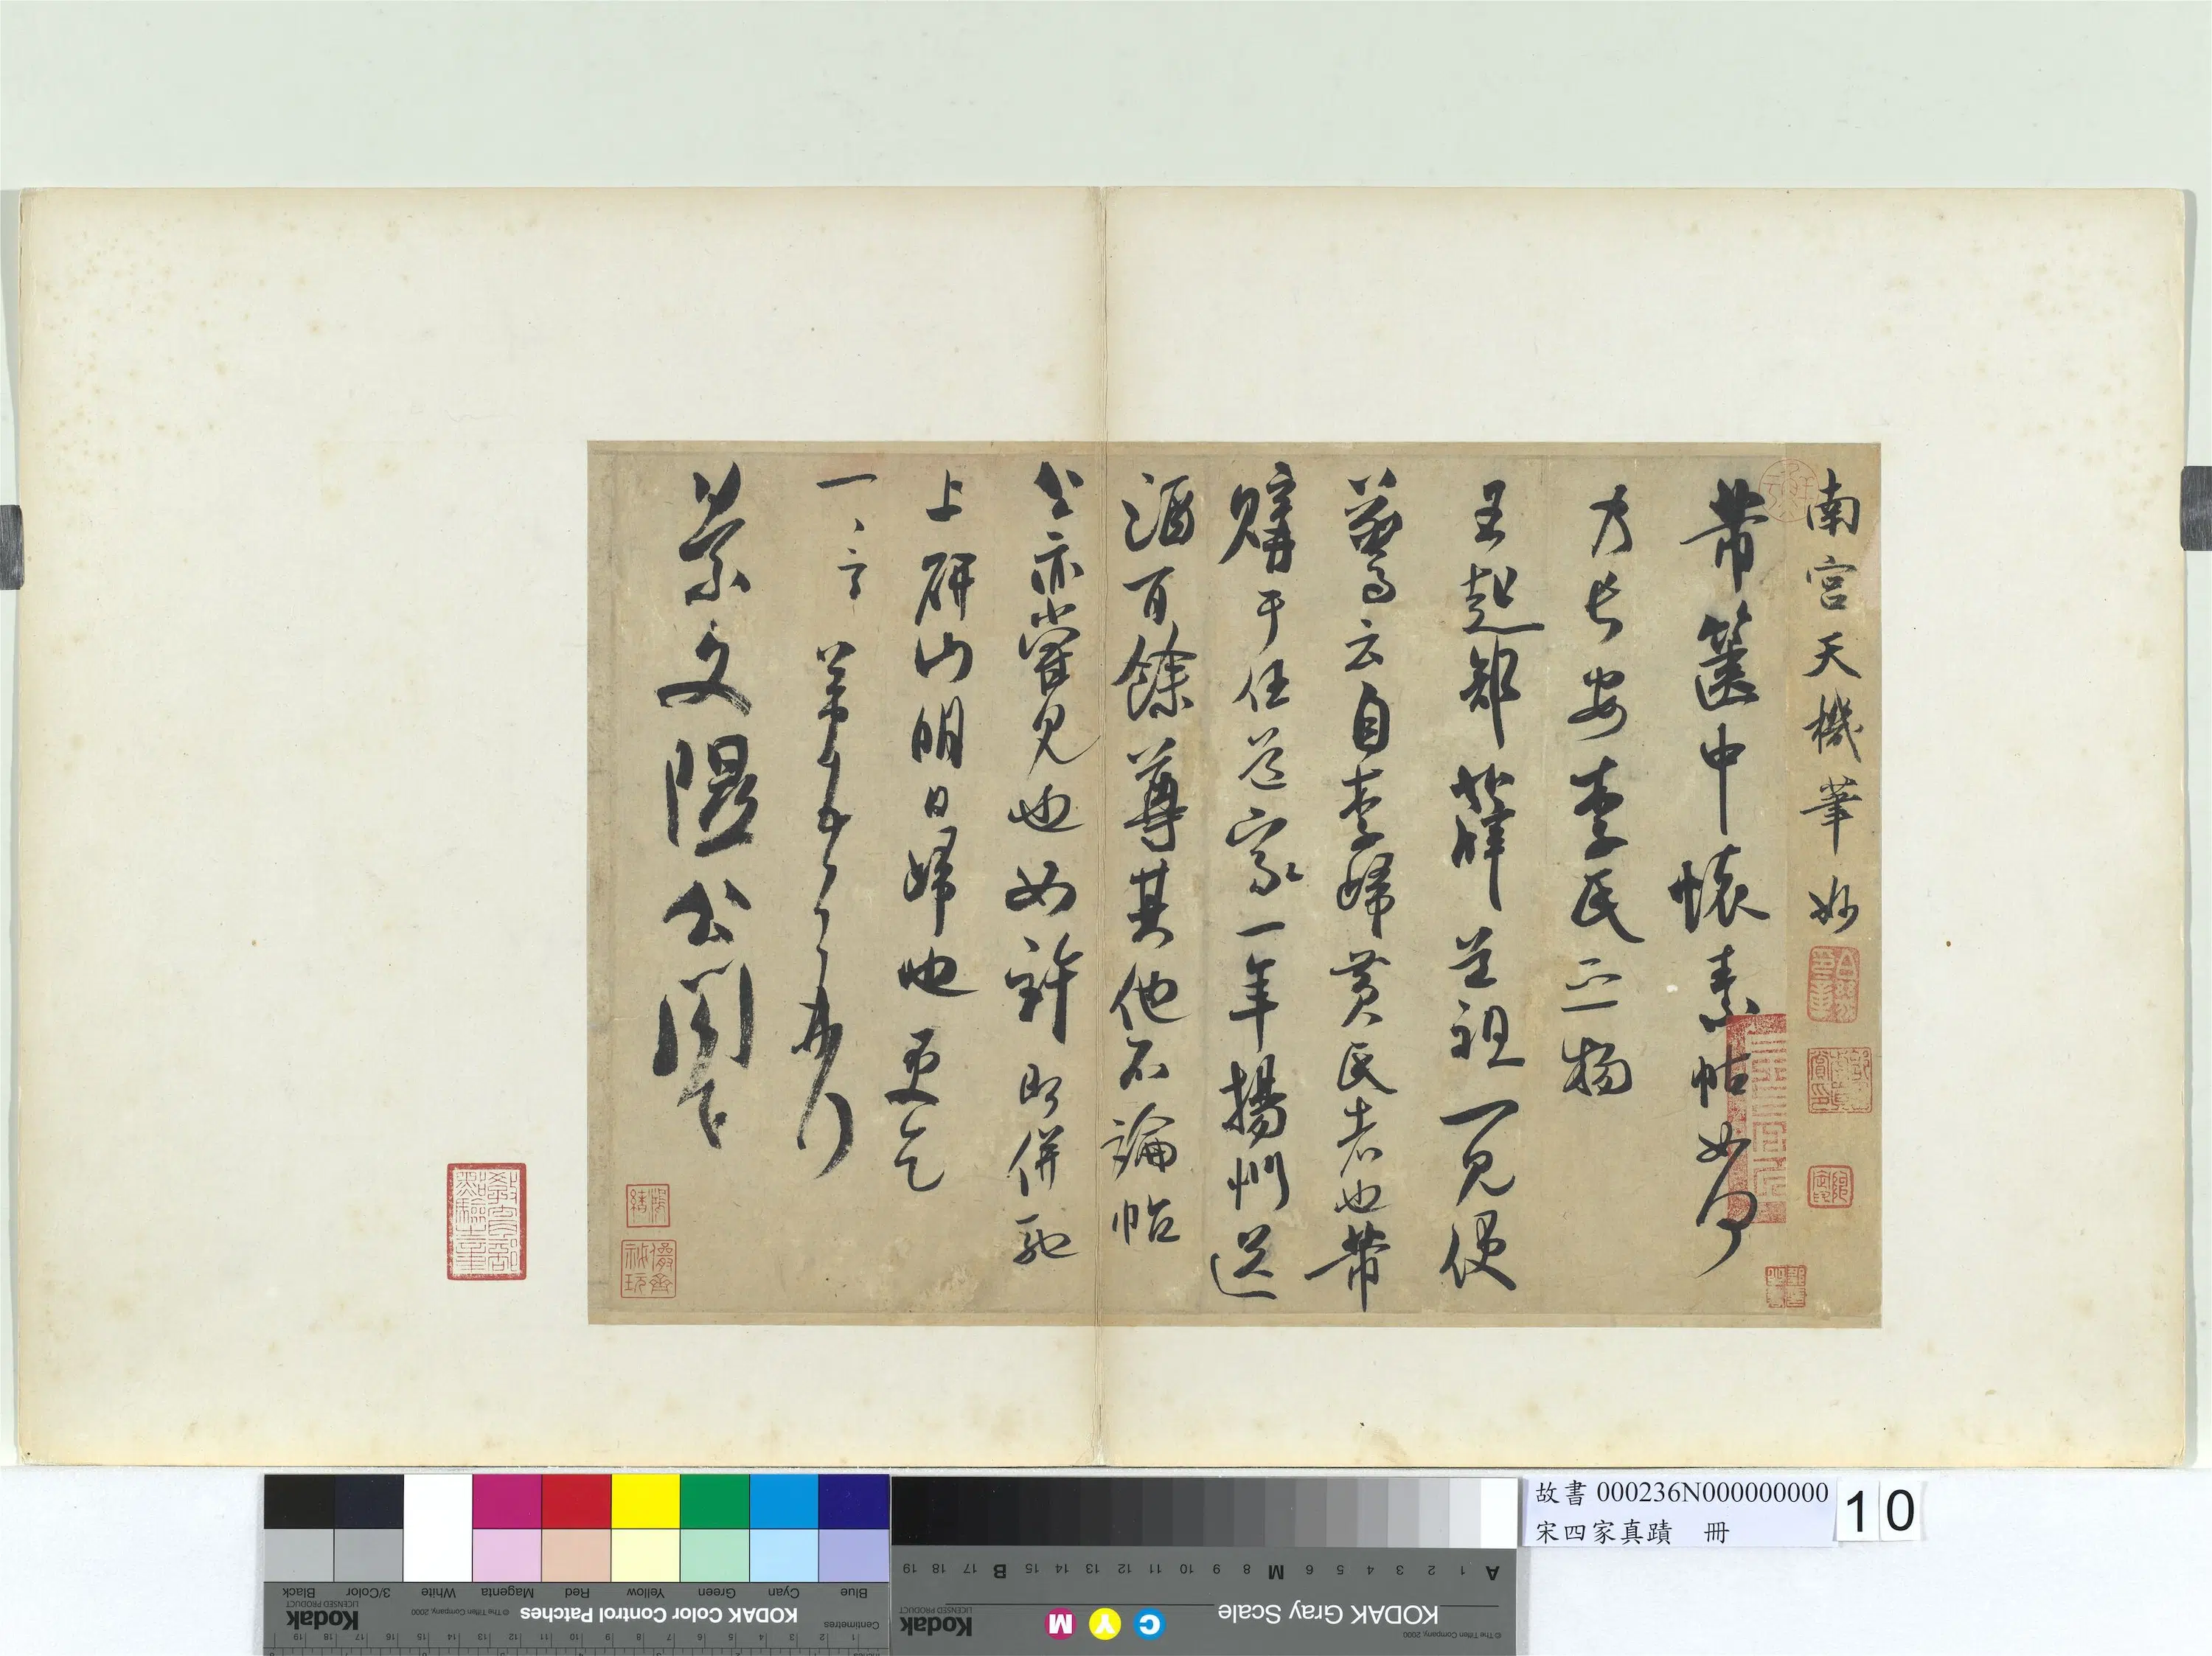 南宮天機筆妙
芾篋中懷素帖如何
乃長安李氏之物
王起部薛道祖一見便
驚云自李歸黃氏者也芾
購于任道家一年揚州送
酒百餘尊其他不論帖
公亦嘗見也如許即併馳
上研山明日歸也更乞
一言芾頓首再拜
景文隰公閣下
故書 000236N000000000
宋四家真蹟 冊
10
Blue Cyan Green Yellow Red Magenta White 3/Color Black
KODAK Color Control Patches
© The Tiffen Company, 2000
Kodak
LICENSED PRODUCT
Centimetres
A 1 2 3 4 5 6 M 8 9 10 11 12 13 14 15 B 17 18 19
KODAK Gray Scale
C Y M
Kodak
LICENSED PRODUCT
© The Tiffen Company, 2000